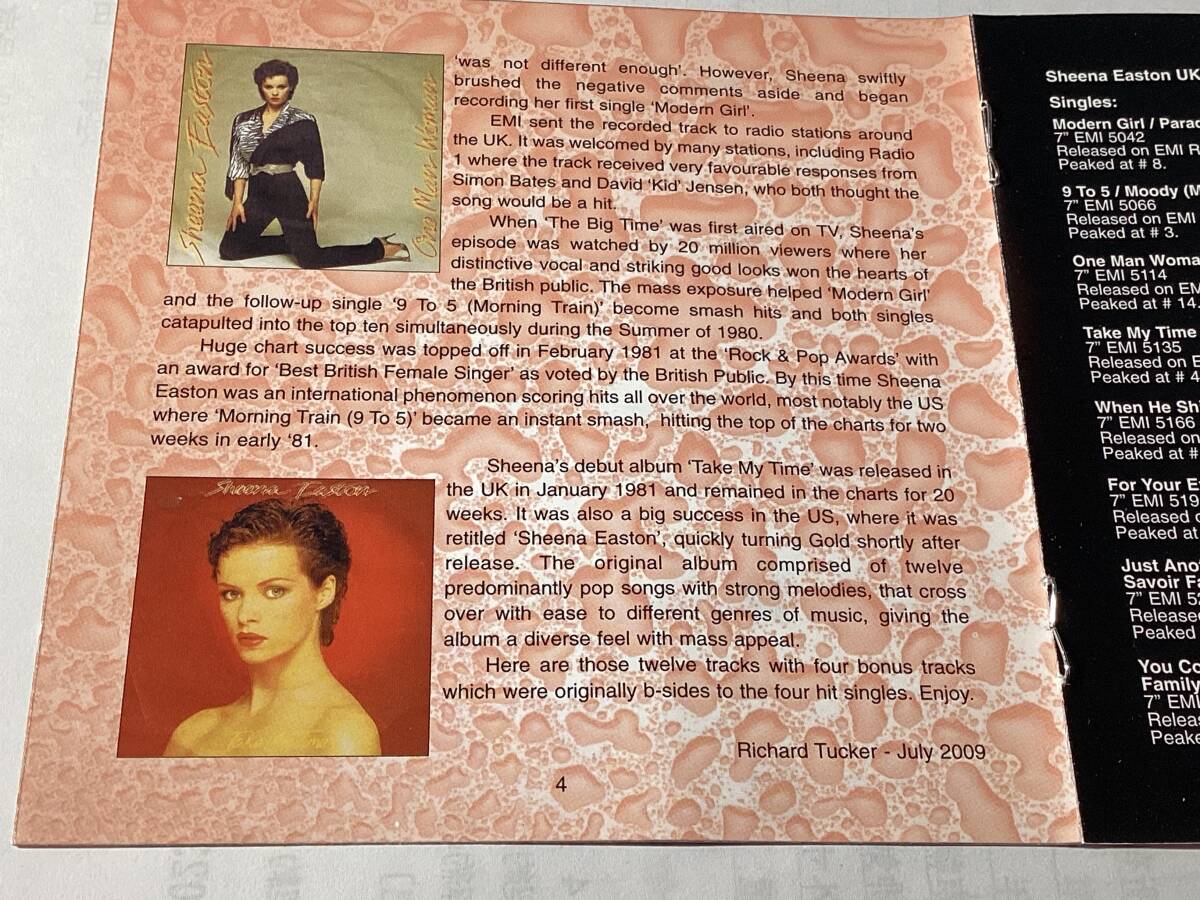 Sheena Easton
One Man Woman
'was not different enough'. However, Sheena swiftly
brushed the negative comments aside and began
recording her first single 'Modern Girl'.
EMI sent the recorded track to radio stations around
the UK. It was welcomed by many stations, including Radio
1 where the track received very favourable responses from
Simon Bates and David 'Kid' Jensen, who both thought the
song would be a hit.
When 'The Big Time' was first aired on TV, Sheena's
episode was watched by 20 million viewers where her
distinctive vocal and striking good looks won the hearts of
the British public. The mass exposure helped 'Modern Girl'
and the follow-up single '9 To 5 (Morning Train)' become smash hits and both singles
catapulted into the top ten simultaneously during the Summer of 1980.
Huge chart success was topped off in February 1981 at the 'Rock & Pop Awards' with
an award for 'Best British Female Singer' as voted by the British Public. By this time Sheena
Easton was an international phenomenon scoring hits all over the world, most notably the US
where 'Morning Train (9 To 5)' became an instant smash, hitting the top of the charts for two
weeks in early '81.
Sheena Easton
Take My Time
Sheena's debut album 'Take My Time' was released in
the UK in January 1981 and remained in the charts for 20
weeks. It was also a big success in the US, where it was
retitled 'Sheena Easton', quickly turning Gold shortly after
release. The original album comprised of twelve
predominantly pop songs with strong melodies, that cross
over with ease to different genres of music, giving the
album a diverse feel with mass appeal.
Here are those twelve tracks with four bonus tracks
which were originally b-sides to the four hit singles. Enjoy.
Richard Tucker - July 2009
4
Sheena Easton UK
Singles:
Modern Girl / Parad
7" EMI 5042
Released on EMI R
Peaked at # 8.
9 To 5 / Moody (M
7" EMI 5066
Released on EMI
Peaked at # 3.
One Man Woma
7" EMI 5114
Released on EM
Peaked at # 14.
Take My Time
7" EMI 5135
Released on E
Peaked at # 4
When He Shi
7" EMI 5166
Released on
Peaked at #
For Your E
7" EMI 519
Released o
Peaked at
Just Ano
Savoir Fa
7" EMI 52
Released
Peaked
You Co
Family
7" EMI
Relea
Peake